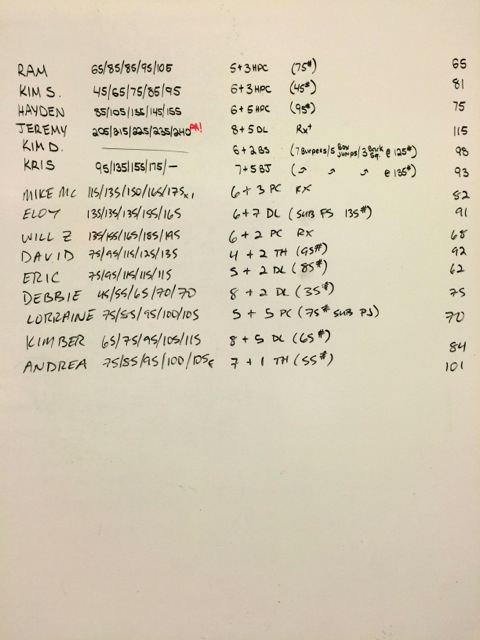 RAM 65/85/85/95/105 5+3HPC (75#) 65
KIM S. 45/65/75/85/95 6+3HPC (45#) 81
HAYDEN 85/105/135/145/155 6+5HPC (95#) 75
JEREMY 205/215/225/235/240 PR! 8+5DL Rx+ 115
KIM D. 6+2BS (7 Burpees/5 Box Jumps/3 Back Sq. @ 125#) 98
KRIS 95/135/155/175/— 7+5BJ ( @ 135#) 93
MIKE MC 115/135/150/165/175x1 6+3 PC RX 82
ELOY 135/135/135/155/165 6+7 DL (SUB FS 135#) 91
WILL Z 135/155/165/185/195 6+2 PC RX 68
DAVID 75/95/115/125/135 4+2 TH (95#) 92
ERIC 75/95/115/115/115 5+2 DL (85#) 62
DEBBIE 45/55/65/70/70 8+2 DL (35#) 75
LORRAINE 75/85/95/100/105 5+5 PC (75# SUB PJ) 70
KIMBER 65/75/95/105/115 8+5 DL (65#) 84
ANDREA 75/85/95/100/105 7+1 TH (55#) 101